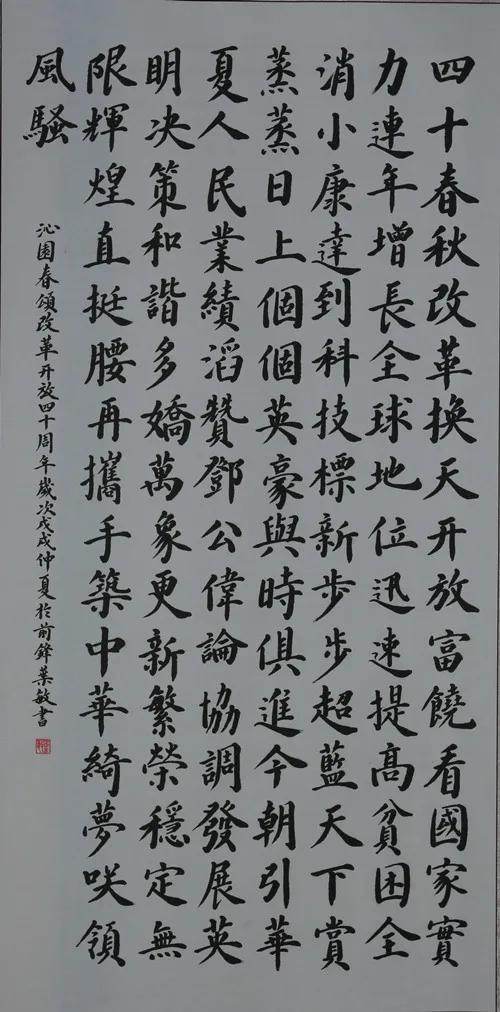 四十春秋改革換天开放富饒看國家實
力連年增長全球地位迅速提髙貧困全
消小康達到科技標新步步超藍天下賞
蒸蒸日上個個英豪與時俱進今朝引華
夏人民業績滔贊鄧公偉論協調發展英
明决策和諧多嬌萬象更新繁榮穩定無
限輝煌直挺腰再攜手築中華綺夢咲領
風騷
沁園春頌改革开放四十周年歲次戊戌仲夏於前鋒葉敏書